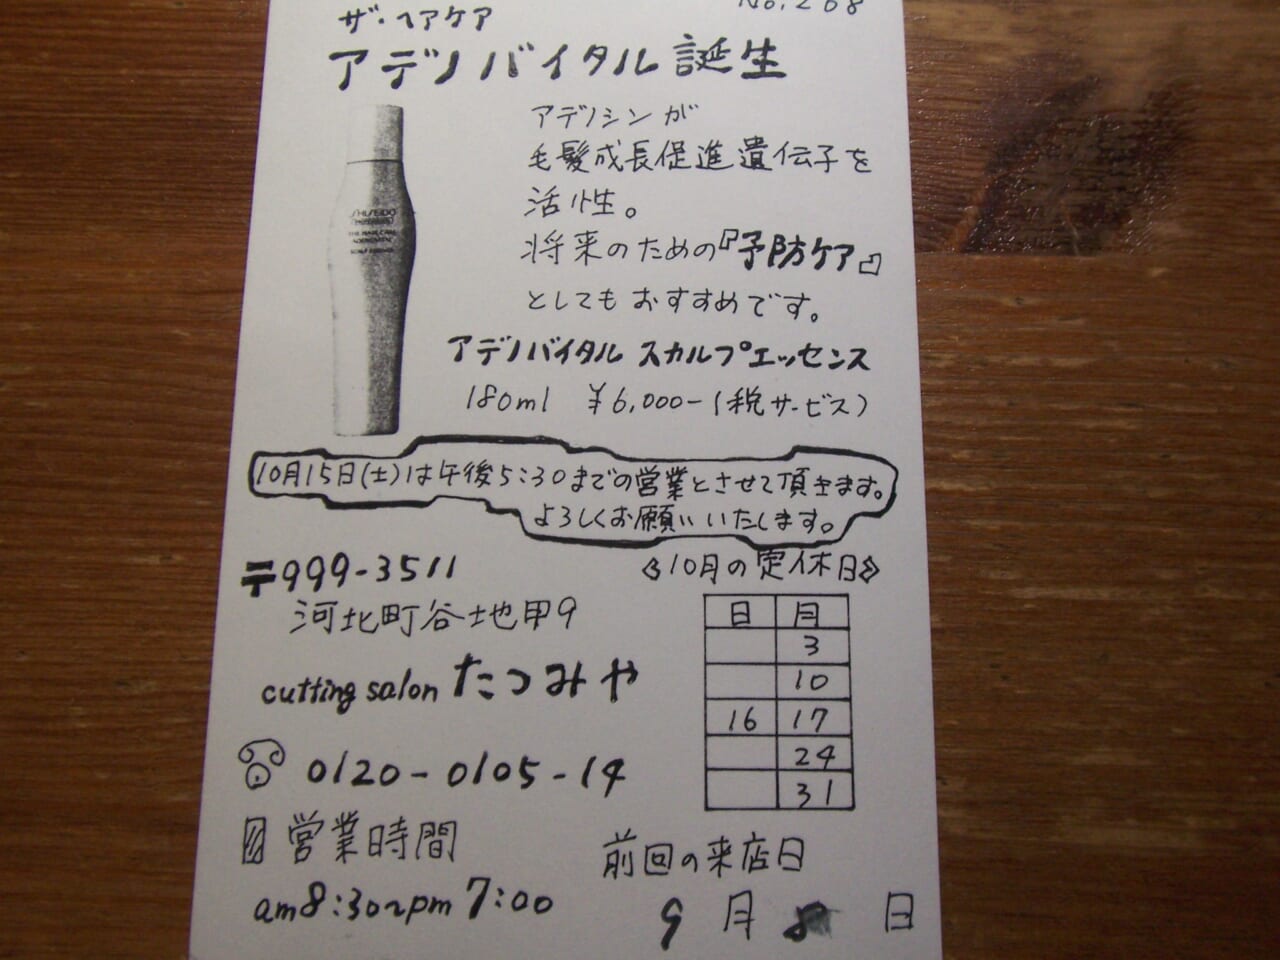 No.268
ザ・ヘアケア
アデノバイタル誕生
アデノシンが
毛髪成長促進遺伝子を
活性。
将来のための『予防ケア』
としてもおすすめです。
SHISEIDO
PROFESSIONAL
THE HAIR CARE
ADENOVITAL
SCALP ESSENCE
アデノバイタル スカルプエッセンス
180ml ¥6,000-(税サービス)
10月15日(土)は午後5:30までの営業とさせて頂きます。
よろしくお願いいたします。
〒999-3511
河北町谷地甲9
cutting salon たつみや
0120-0105-14
営業時間
am8:30~pm7:00
《10月の定休日》
日 月
3
10
16 17
24
31
前回の来店日
9月8日